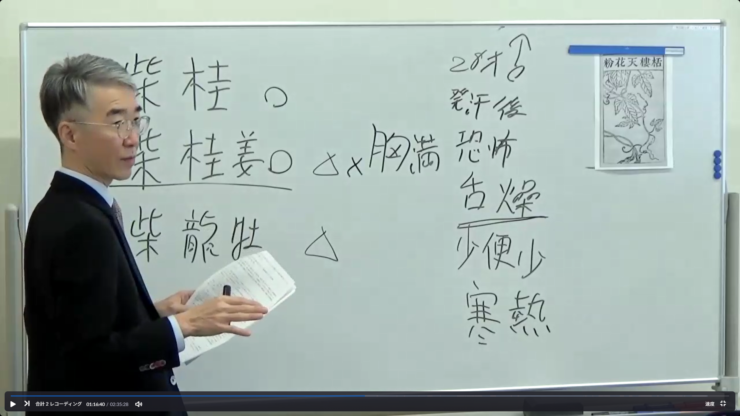 柴桂○
柴桂姜○ △×胸満
柴龍牡 △
28才
発汗後
恐怖
舌燥
少便少
寒熱
粉花天樓栝
合計2レコーディング 01:16:40 / 02:35:28
速度